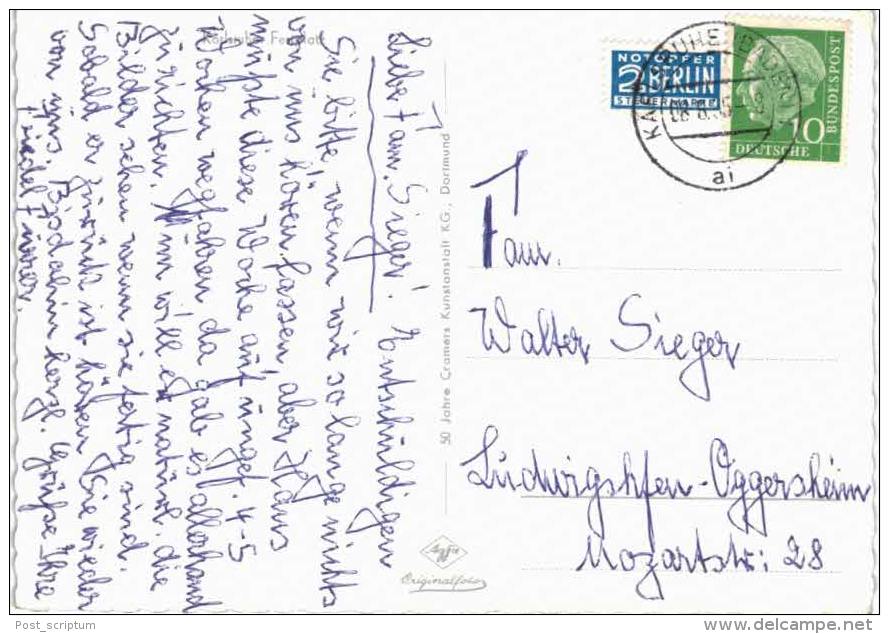 Karlsruhe Festplatz
Liebe Fam. Sieger! Entschuldigen
Sie bitte, wenn wir so lange nichts
von uns hören lassen, aber Hans
mußte diese Woche auf ungef. 4-5
Wochen wegfahren da gab es allerhand
zu richten. Nun will er natürl. die
Bilder sehen wenn sie fertig sind.
Sobald er zurück ist hören Sie wieder
von uns. Bis dahin herzl. Grüße Ihre
Friedel
50 Jahre Cramers Kunstanstalt KG., Dortmund
Agfa
Originalfoto
NOTOPFER
2 BERLIN
STEUERMARKE
KARLSRUHE (BADEN)
ai
10
DEUTSCHE
BUNDESPOST
Fam.
Walter Sieger
Ludwigshfen-Oggersheim
Mozartstr: 28
Post_scriptum
http://www.delcampe.net